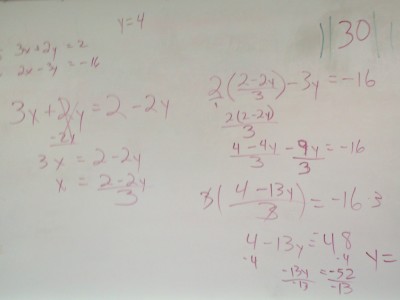 y=4
3x+2y=2
2x-3y=-16
3x+2y=2-2y
-2y
3x = 2-2y
x = 2-2y/3
30
2/1(2-2y/3)-3y=-16
2(2-2y)/3
4-4y/3 - 9y/3 = -16
3(4-13y/3) = -16·3
4-13y=-48
-4 -4
-13y/-13 = -52/-13
y=